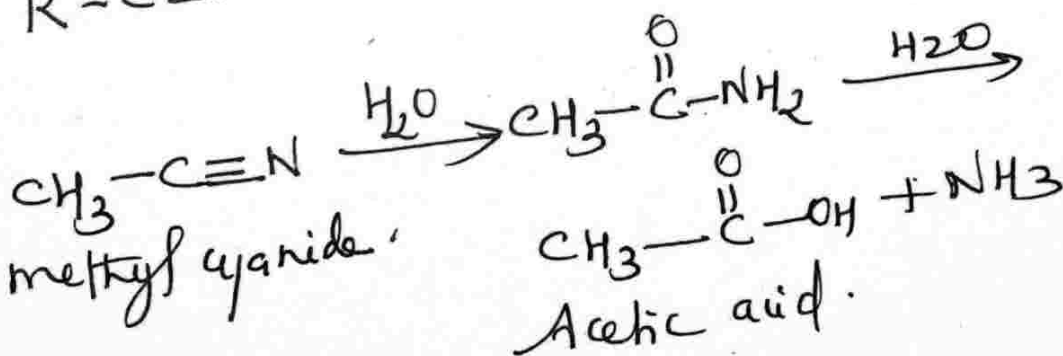 R-C
CH₃-C≡N —H₂O→ CH₃-C(=O)-NH₂ —H2O→
methyl cyanide.
CH₃-C(=O)-OH + NH3
Acetic acid.